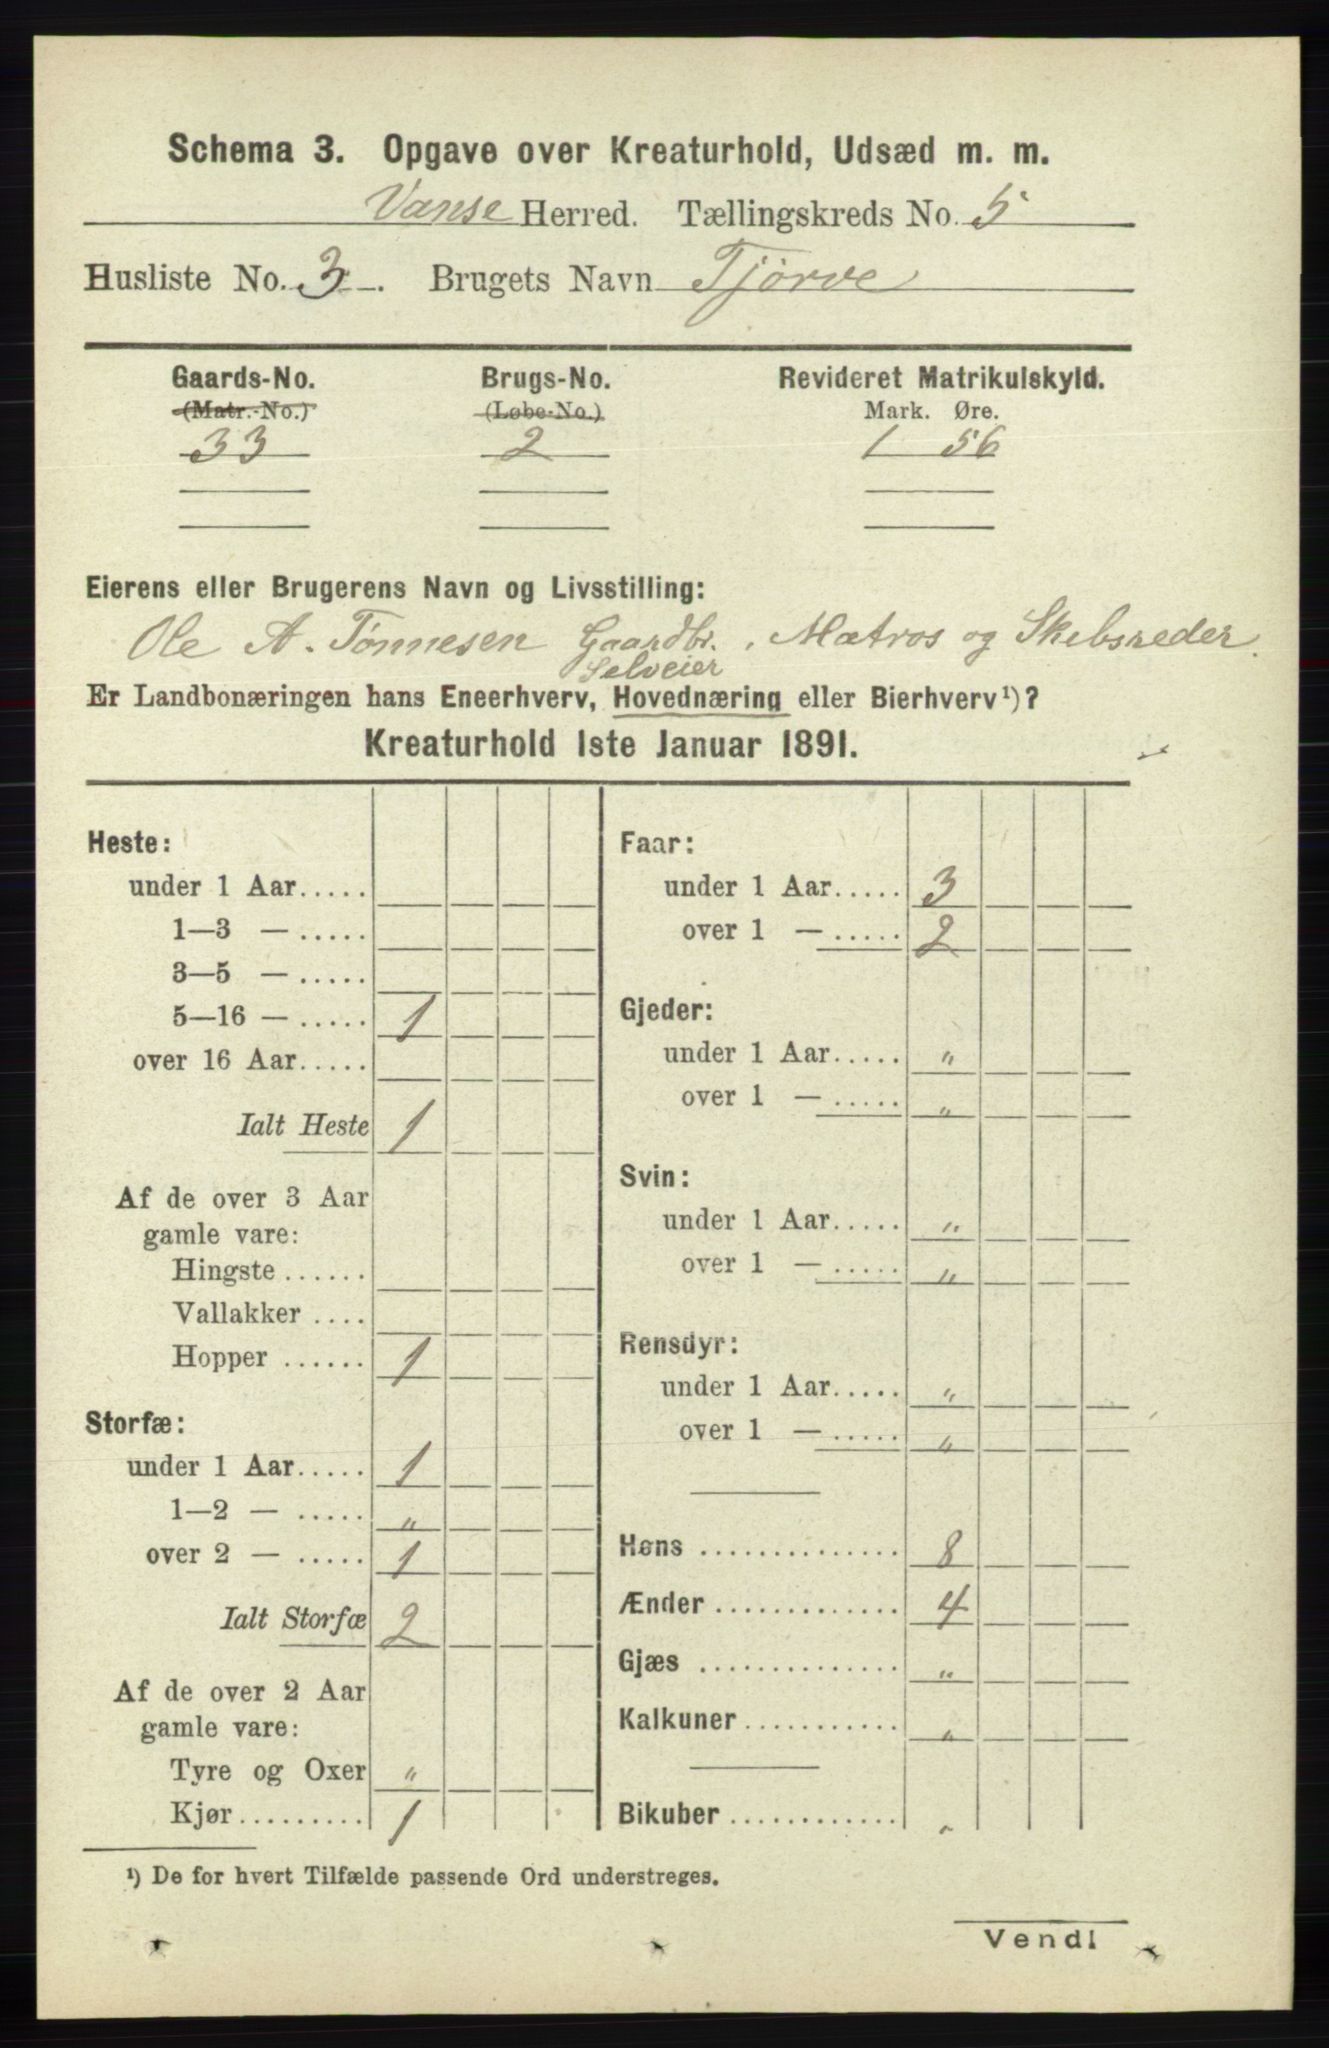 Schema 3. Opgave over Kreaturhold, Udsæd m. m.
Vanse Herred. Tællingskreds No. 5
Husliste No. 3. Brugets Navn Tjørve
Gaards-No. Brugs-No. Revideret Matrikulskyld.
(Matr.-No.) (Løbe-No.) Mark. Øre.
33 2 1 56
Eierens eller Brugerens Navn og Livsstilling:
Ole A. Tønnesen Gaardbr., Matros og Skebsreder.
Selveier
Er Landbonæringen hans Eneerhverv, Hovednæring eller Bierhverv¹)?
Kreaturhold 1ste Januar 1891.
Heste:
under 1 Aar.....
1—3 — .....
3—5 — .....
5—16 — ..... 1
over 16 Aar.....
Ialt Heste 1
Af de over 3 Aar
gamle vare:
Hingste ......
Vallakker ....
Hopper ...... 1
Storfæ:
under 1 Aar..... 1
1—2 — ..... "
over 2 — ..... 1
Ialt Storfæ 2
Af de over 2 Aar
gamle vare:
Tyre og Oxer "
Kjør......... 1
Faar:
under 1 Aar..... 3
over 1 — ..... 2
Gjeder:
under 1 Aar..... "
over 1 — ..... "
Svin:
under 1 Aar..... "
over 1 — ..... "
Rensdyr:
under 1 Aar..... "
over 1 — ..... "
Høns .............. 8
Ænder ............. 4
Gjæs .............. "
Kalkuner ........... "
Bikuber ............ "
¹) De for hvert Tilfælde passende Ord understreges.
Vend!